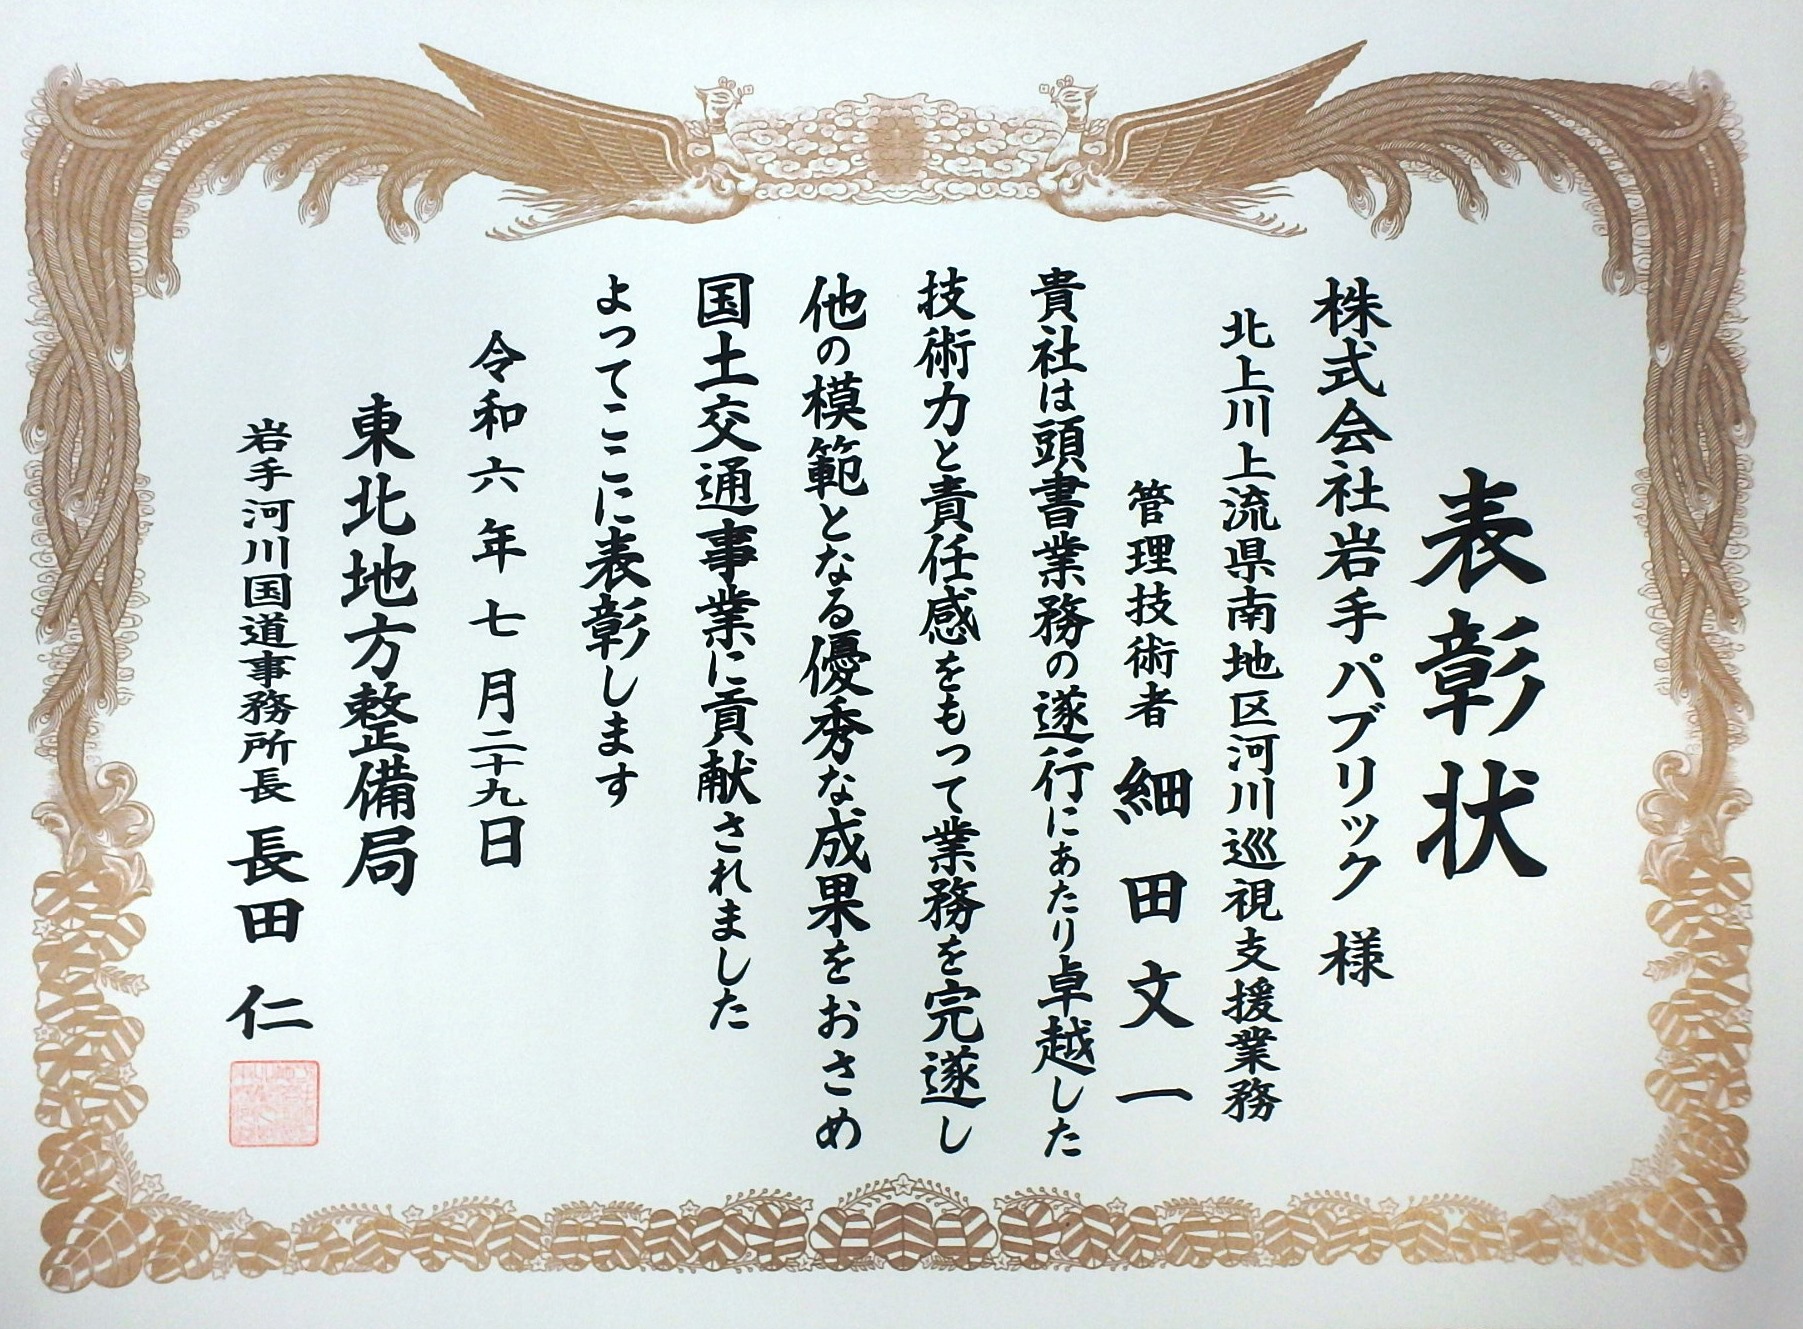 表彰状
株式会社岩手パブリック 様
北上川上流県南地区河川巡視支援業務
管理技術者 細田文一
貴社は頭書業務の遂行にあたり卓越した
技術力と責任感をもって業務を完遂し
他の模範となる優秀な成果をおさめ
国土交通事業に貢献されました
よってここに表彰します
令和六年七月二十九日
東北地方整備局
岩手河川国道事務所長 長田 仁